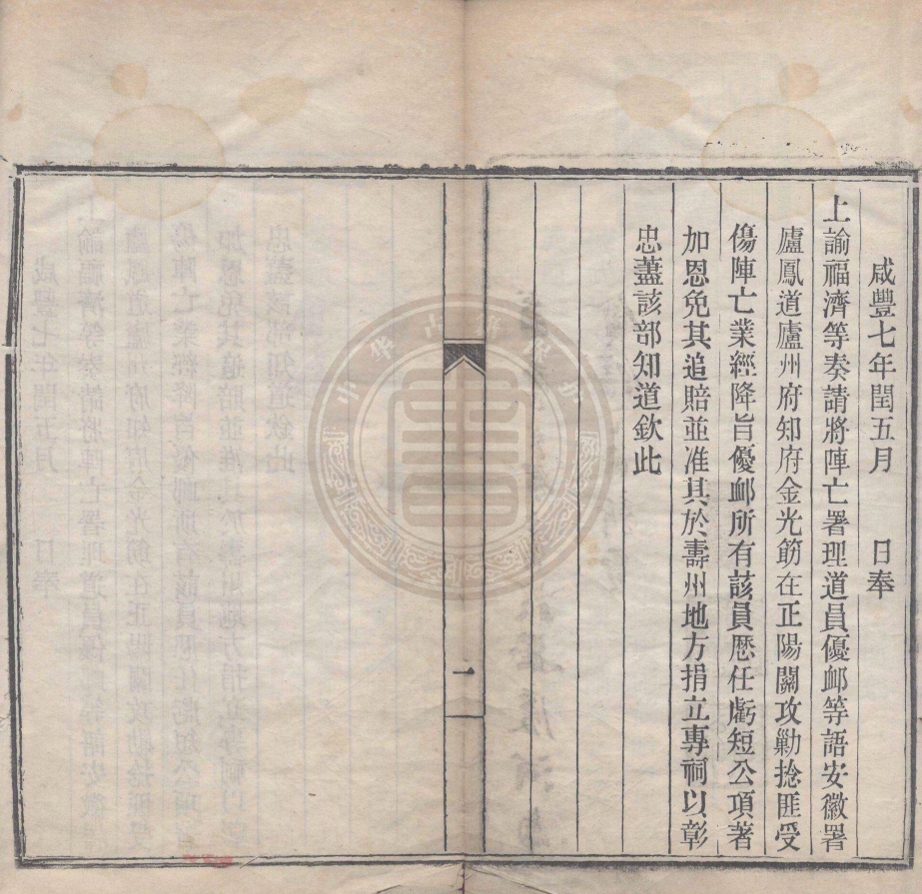 咸豐七年閏五月　日奉
上諭福濟等奏請將陣亡署理道員優衈等語安徽署
廬鳳道廬州府知府金光筯在正陽關攻勦捻匪受
傷陣亡業經降旨優衈所有該員歷任虧短公項著
加恩免其追賠並准其於壽州地方捐立專祠以彰
忠藎該部知道欽此
一